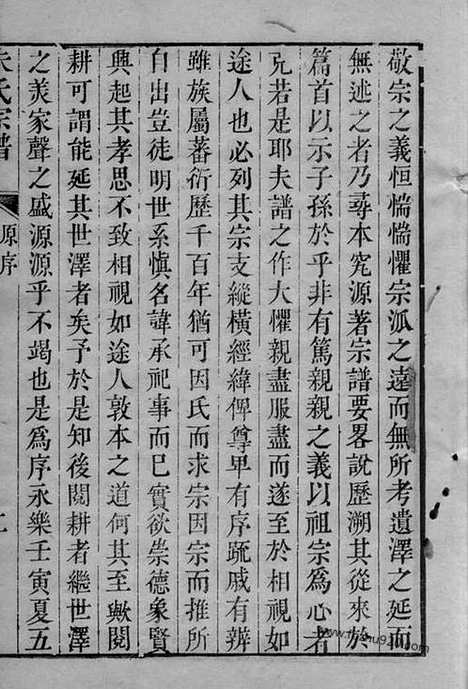 敬宗之義恒惴惴懼宗派之遠而無所考遺澤之延而
無述之者乃尋本究源著宗譜要畧說歷溯其從來於
篇首以示子孫於乎非有篤親親之義以祖宗為心者
克若是耶夫譜之作大懼親盡服盡而遂至於相視如
途人也必列其宗支縱橫經緯俾尊卑有序疏戚有辨
雖族屬蕃衍歷千百年猶可因氏而求宗因宗而推所
自出豈徒明世系慎名諱承祀事而已實欲崇德象賢
興起其孝思不致相視如途人敦本之道何其至歟閱
耕可謂能延其世澤者矣予於是知後閱耕者繼世澤
之美家聲之盛源源乎不竭也是為序永樂壬寅夏五
氏宗譜
原序